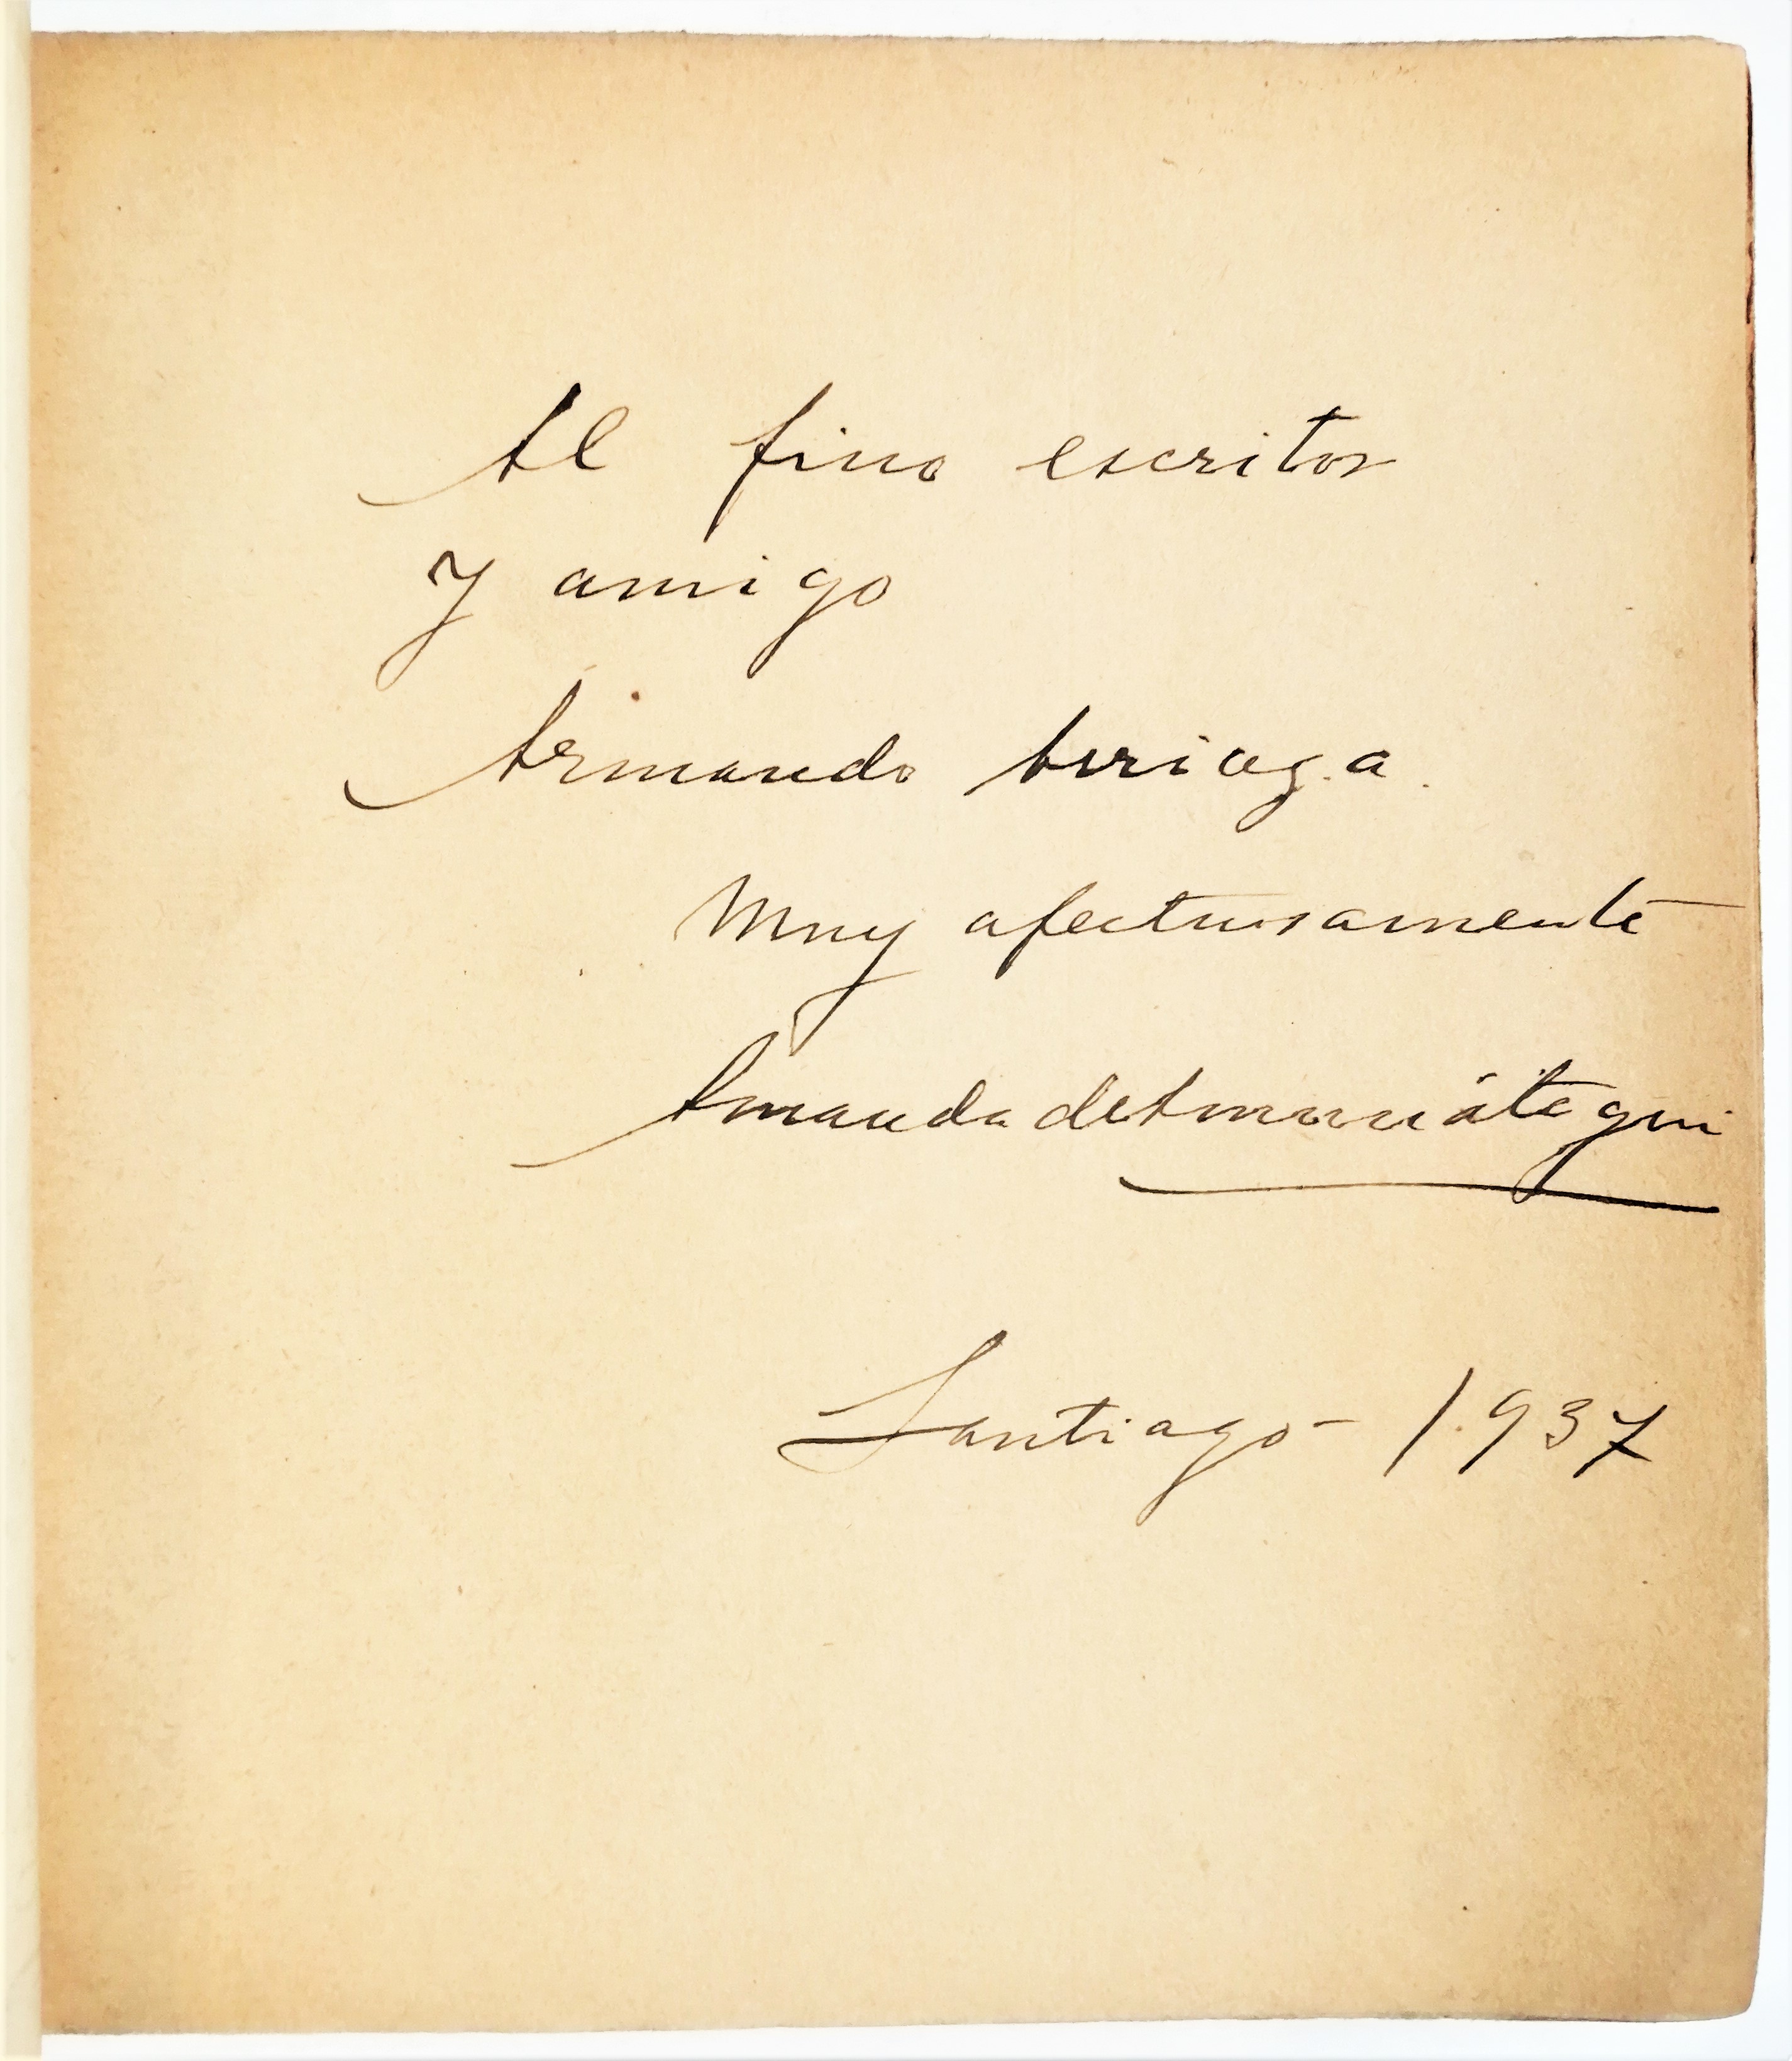 Al fino escritor
y amigo
Armando Arriaga.
Muy afectuosamente
Amanda de Amunátegui
Santiago - 1937